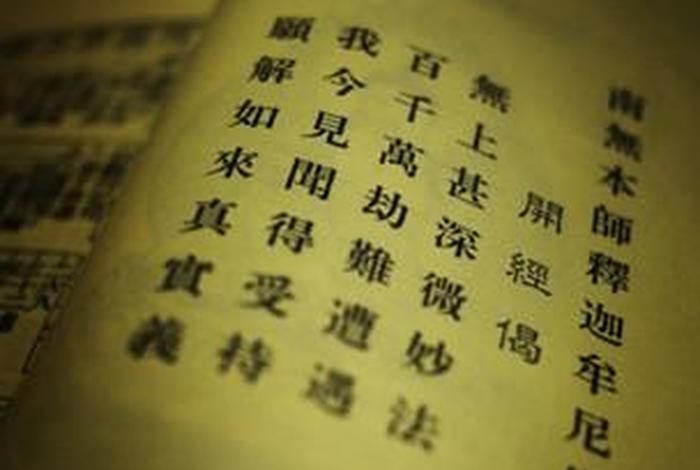 南無本師釋迦牟尼
開經偈
無上甚深微妙法
百千萬劫難遭遇
我今見聞得受持
願解如來真實義